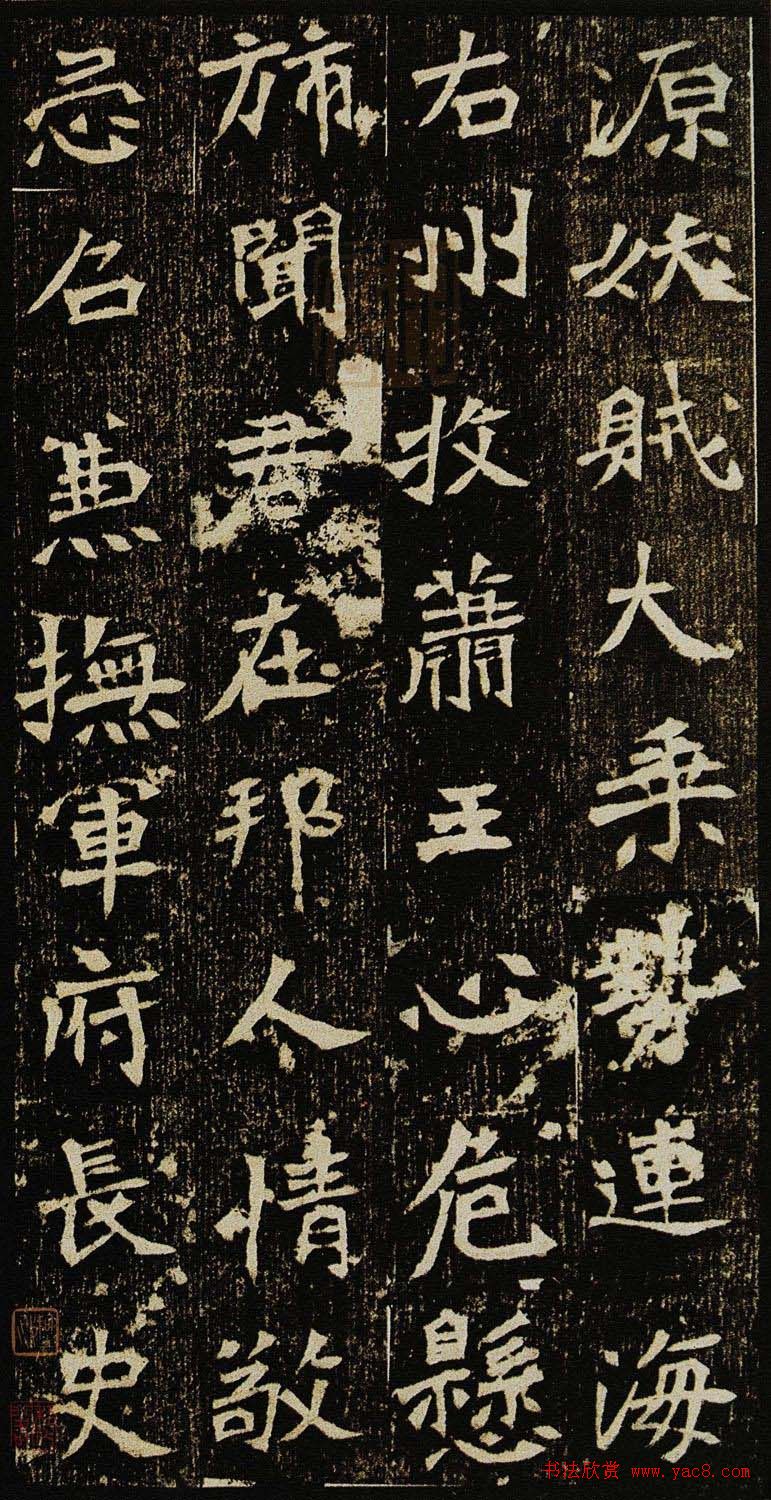 源妖賊大乗勢連海
右州牧蕭王心危懸
旆聞君在邦人情敬
忌召兼撫軍府長史
书法欣赏 www.yac8.com